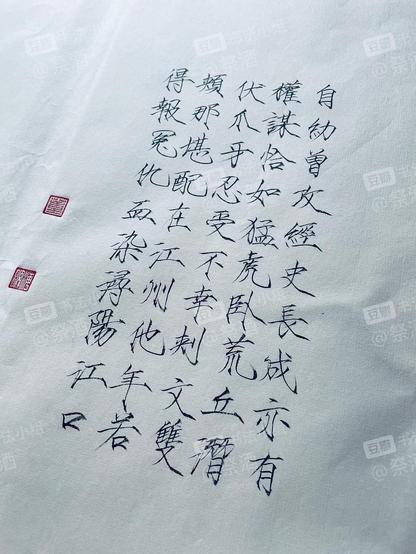 自幼曾攻經史長成亦有
權謀恰如猛虎臥荒丘潛
伏爪牙忍受不幸刺文雙
頰那堪配在江州他年若
得報冤仇血染潯陽江口